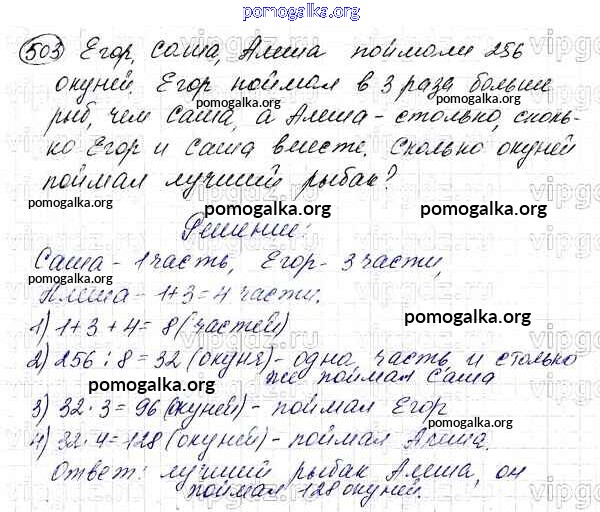 pomogalka.org
503 Егор, Саша, Алеша поймали 256
окуней. Егор поймал в 3 раза больше
рыб, чем Саша, а Алеша - столько, сколь-
ко Егор и Саша вместе. Сколько окуней
поймал лучший рыбак?
Решение:
Саша - 1 часть, Егор - 3 части,
Алеша - 1+3=4 части.
1) 1+3+4= 8 (частей)
2) 256 : 8 = 32 (окуня) - одна часть и столько
же поймал Саша
3) 32 · 3 = 96 (окуней) - поймал Егор
4) 32 · 4 = 128 (окуней) - поймал Алеша.
Ответ: лучший рыбак Алеша, он
поймал 128 окуней.